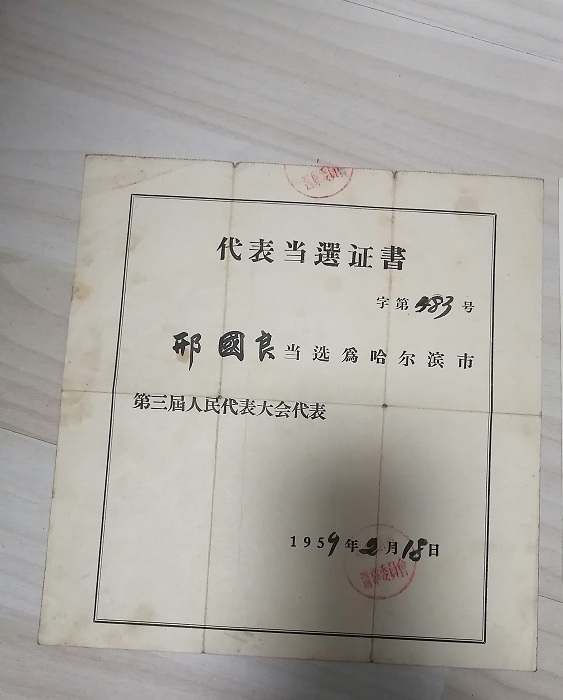 代表当選证書
字第483号
邢國良当选爲哈尔滨市
第三屆人民代表大会代表
1959年2月18日
選舉委員會